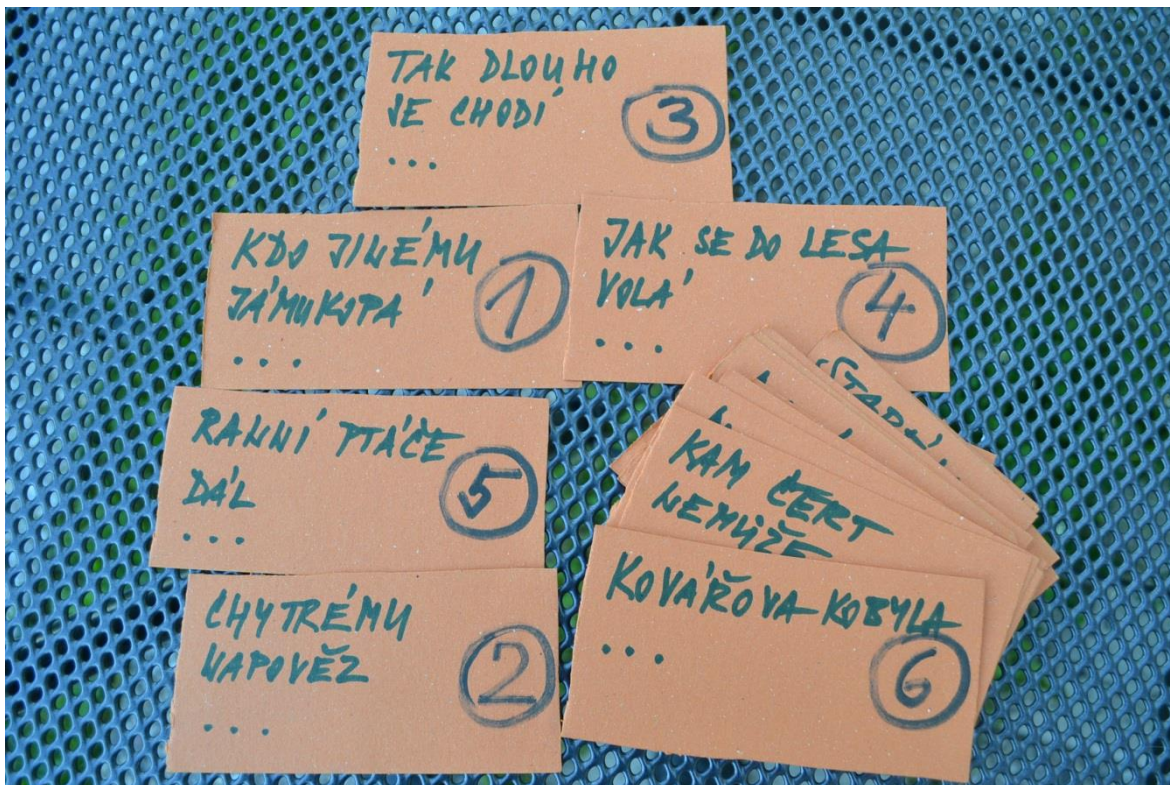 TAK DLOUHO
SE CHODÍ
...
3
KDO JINÉMU
JÁMU KOPÁ
...
1
JAK SE DO LESA
VOLÁ
...
4
RANNÍ PTÁČE
DÁL
...
5
KAM ČERT
NEMŮŽE
CHYTRÉMU
NAPOVĚZ
...
2
KOVÁŘOVA KOBYLA
...
6